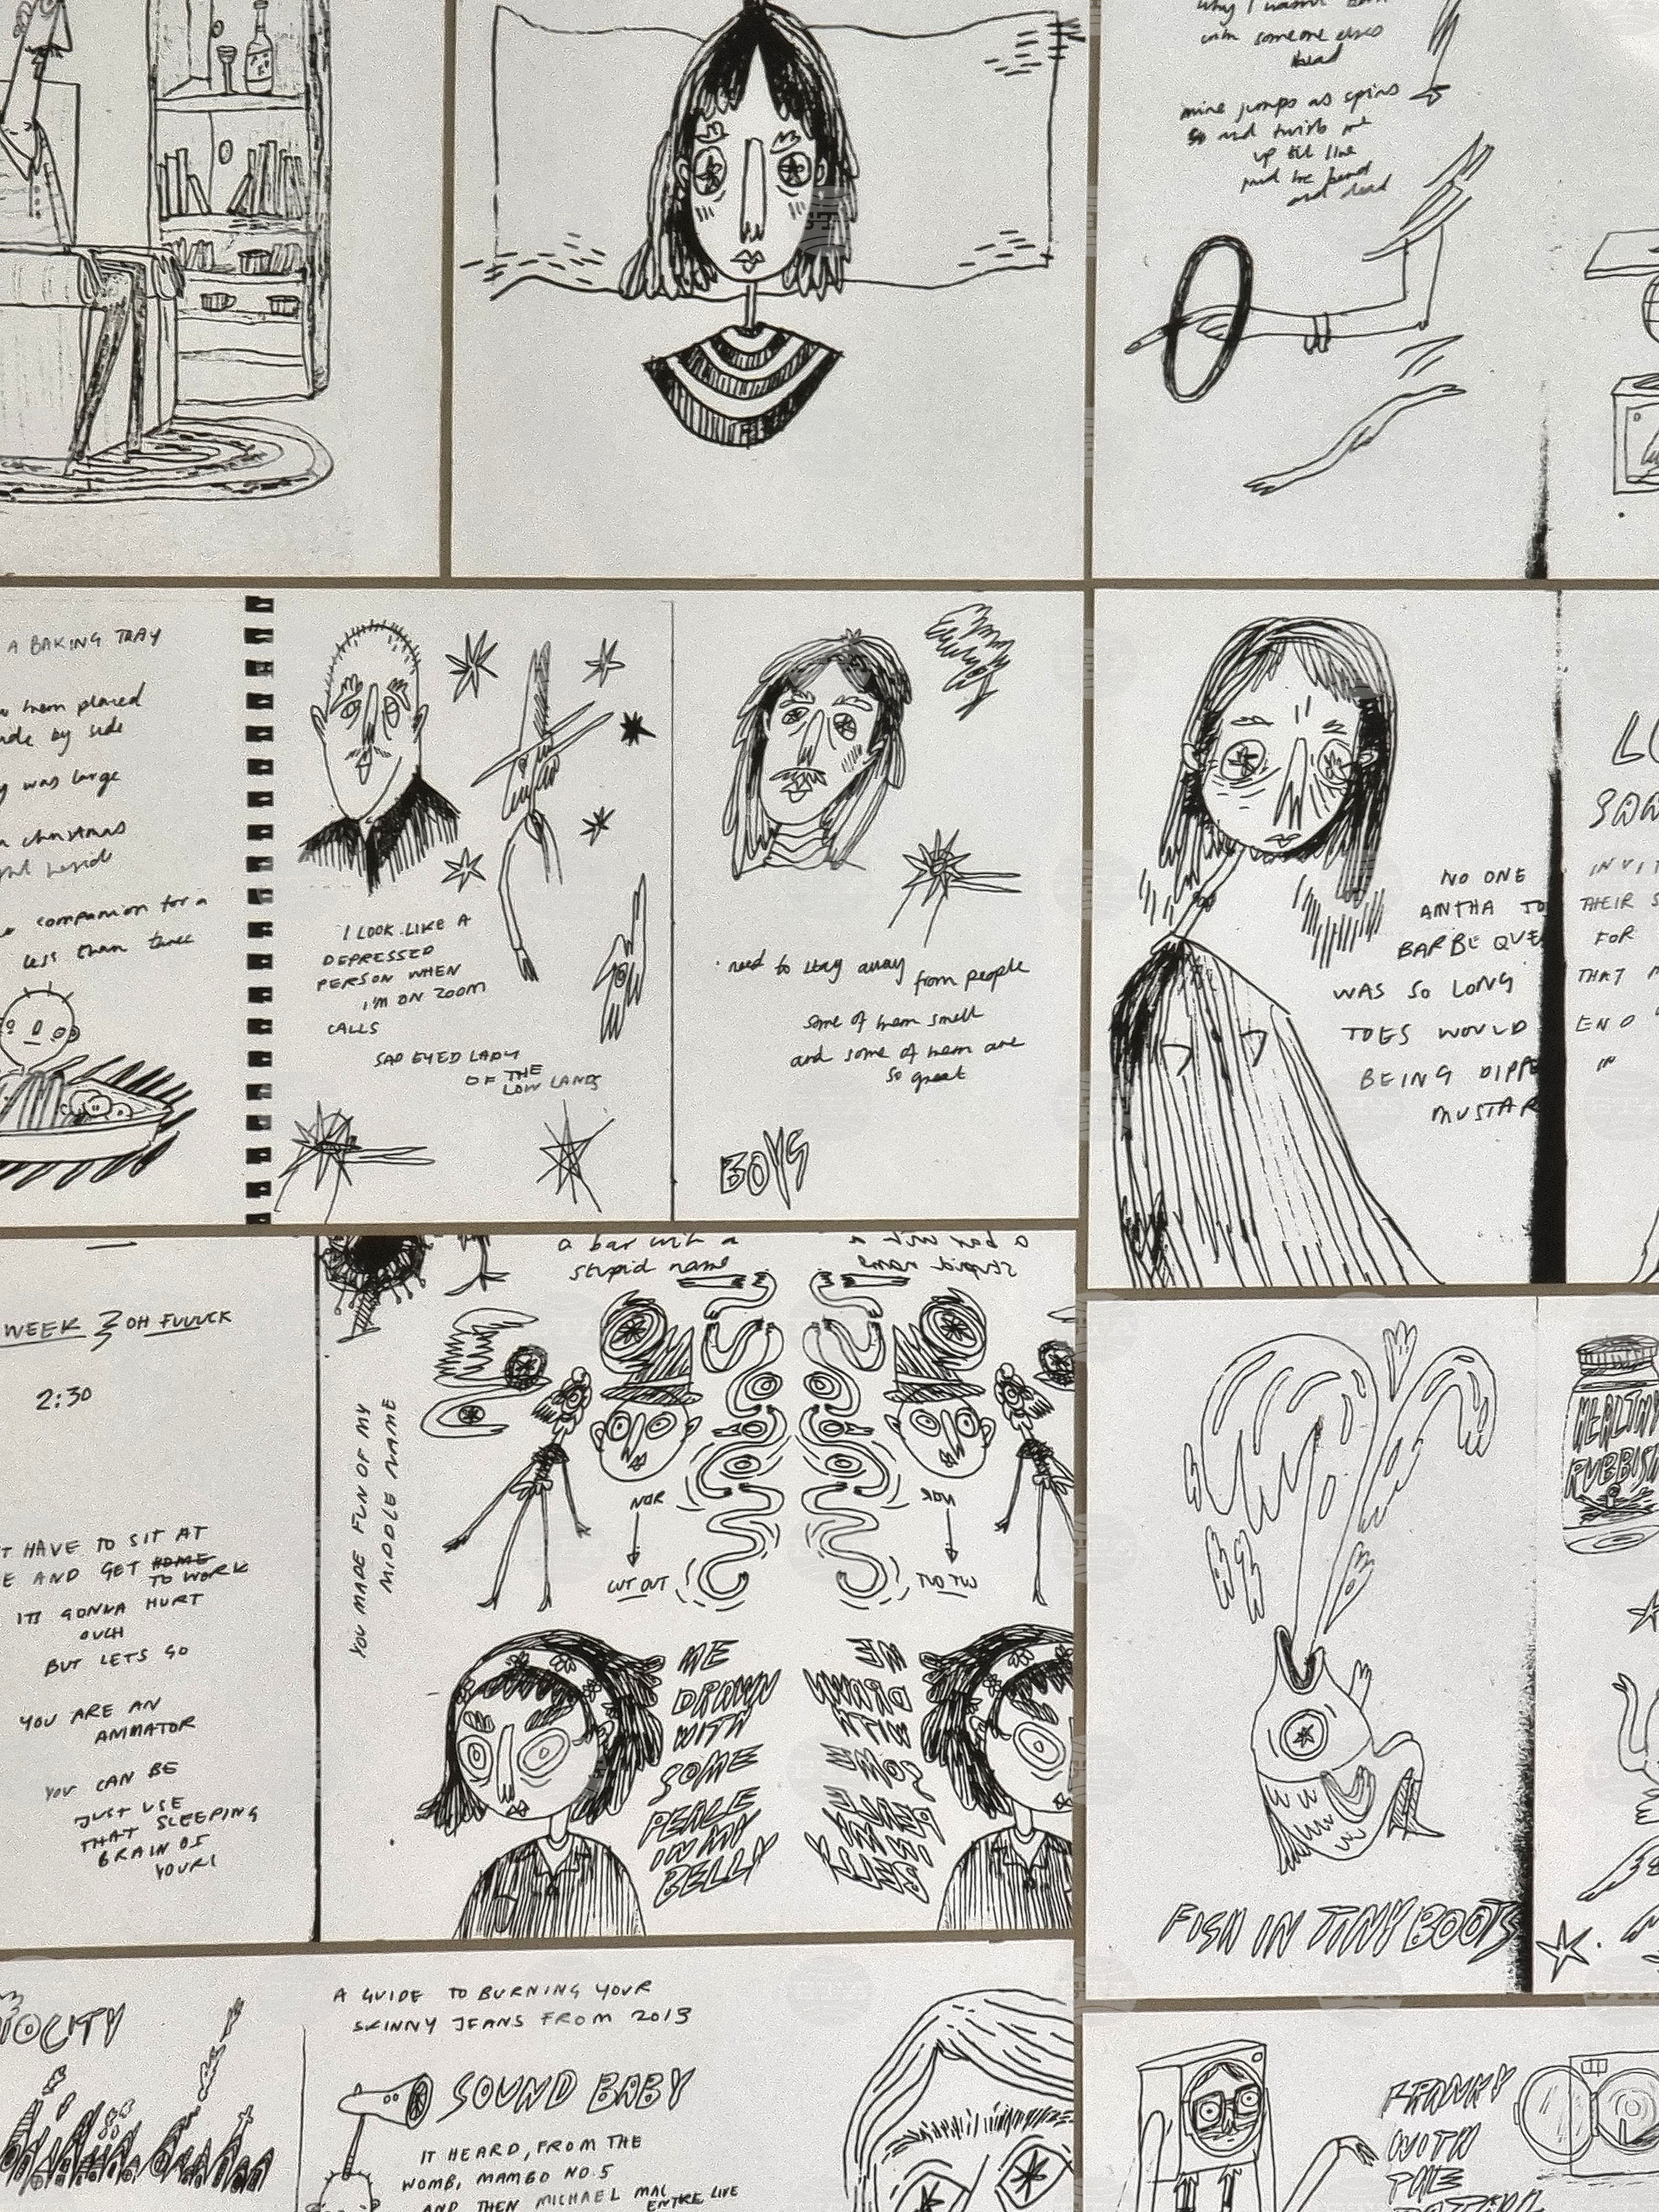 with someone elses
head
mine jumps as spins
so and twists me
up till line
and dead
A BAKING TRAY
them placed
side by side
was large
christmas
companion for a
less than three
I LOOK LIKE A
DEPRESSED
PERSON WHEN
I'M ON ZOOM
CALLS
SAD EYED LADY
OF THE
LOW LANDS
need to stay away from people
some of them smell
and some of them are
so great
BOYS
NO ONE
ANTHA TO
BARBEQUE
WAS SO LONG
TOES WOULD
BEING DIPPE
MUSTAR
INVIT
THEIR S
FOR
THAT
END
IN
WEEK 3 OH FUUUCK
2:30
T HAVE TO SIT AT
E AND GET HOME
TO WORK
ITS GONNA HURT
OUCH
BUT LETS GO
YOU ARE AN
ANIMATOR
YOU CAN BE
JUST USE
THAT SLEEPING
BRAIN OF
YOURS
YOU MADE FUN OF MY
MIDDLE NAME
a bar with a
stupid name
a bar with a
stupid name
NOR
CUT OUT
NOR
CUT OUT
ME
DRAWN
WITH
SOME
PEACE
IN MY
BELLY
ME
DRAWN
WITH
SOME
PEACE
IN MY
BELLY
HEALTHY
RUBBISH
FISH IN TINY BOOTS
OCITY
A GUIDE TO BURNING YOUR
SKINNY JEANS FROM 2013
SOUND BABY
IT HEARD, FROM THE
WOMB, MAMBO NO.5
AND THEN MICHAEL MAC
ENTRE LIVE
FRANKY
WITH
THE